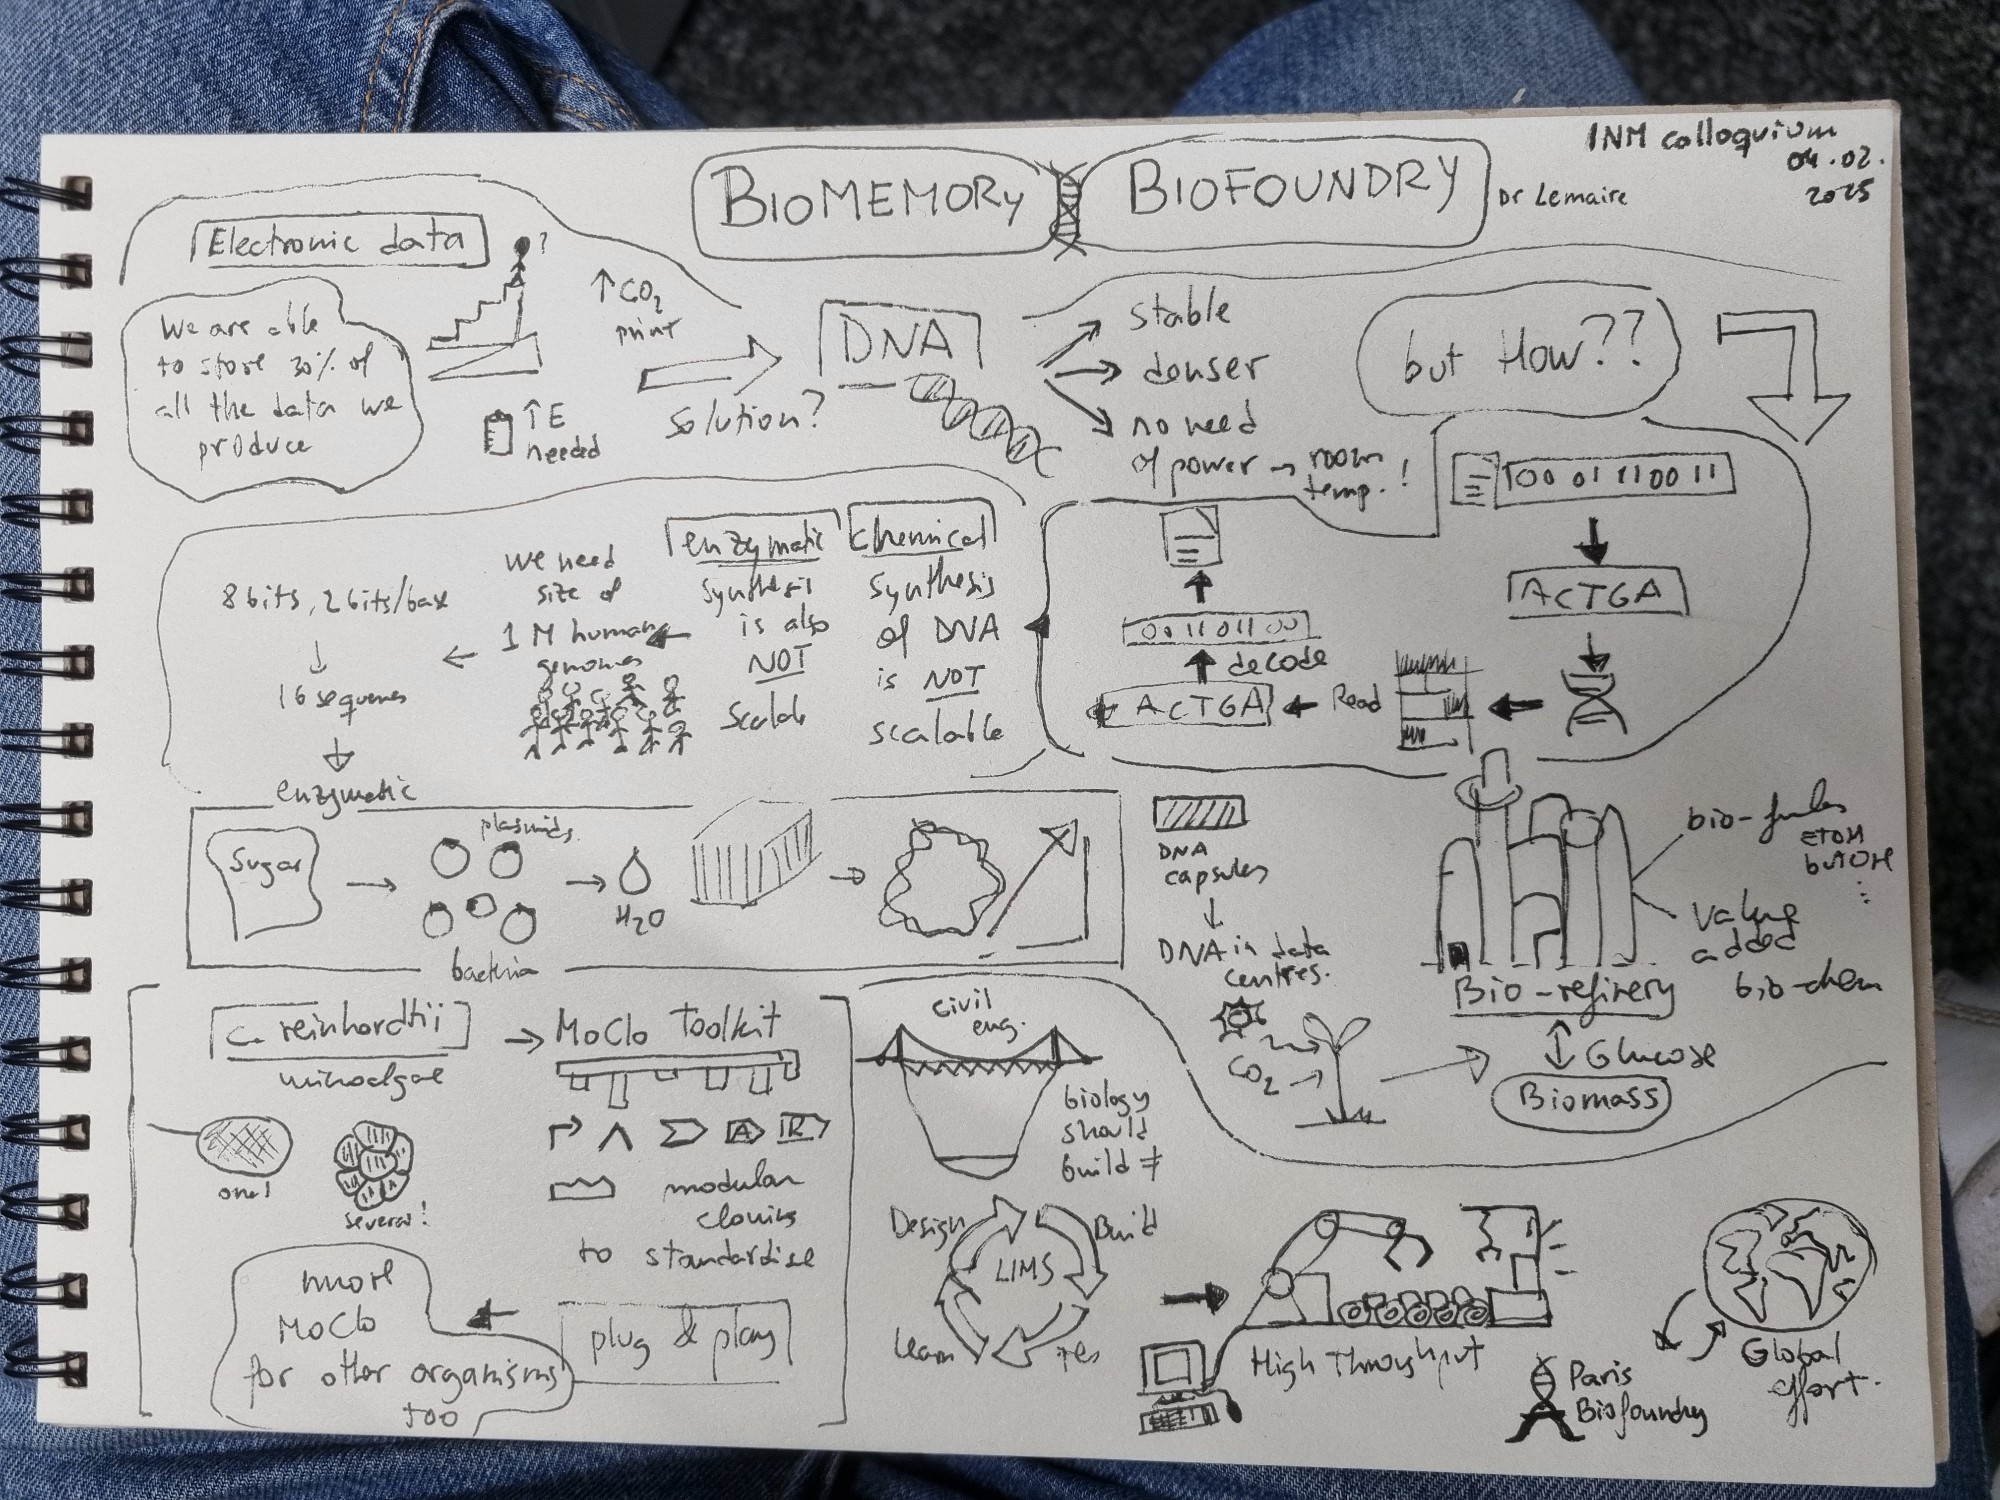 INM colloquium
04.02.
2025
BIOMEMORY
BIOFOUNDRY
Dr Lemaire
Electronic data
?
We are able
to store 30% of
all the data we
produce
↑CO2
print
↑E
needed
Solution?
DNA
stable
denser
no need
of power → room
temp. !
but How??
100 01 11 00 11
ACTGA
Read
ACTGA
decode
00 11 011 00
chemical
synthesis
of DNA
is NOT
scalable
enzymatic
synthesis
is also
NOT
scalab
we need
size of
1 M human
genomes
8 bits, 2 bits/base
16 sequences
enzymatic
Sugar
plasmids
bacteria
H2O
DNA
capsules
DNA in data
centres.
CO2
Bio-refinery
Glucose
Biomass
bio-fules
ETOH
butOH
value
added
bio-chem
C. reinhardtii
microalgae
one!
several!
MoClo Toolkit
A
R
modular
cloning
to standardise
plug & play
more
MoClo
for other organisms
too
civil
eng.
biology
should
build ≠
Design
Build
LIMS
Learn
Tes
High Throughput
Paris
Biofoundry
Global
effort.